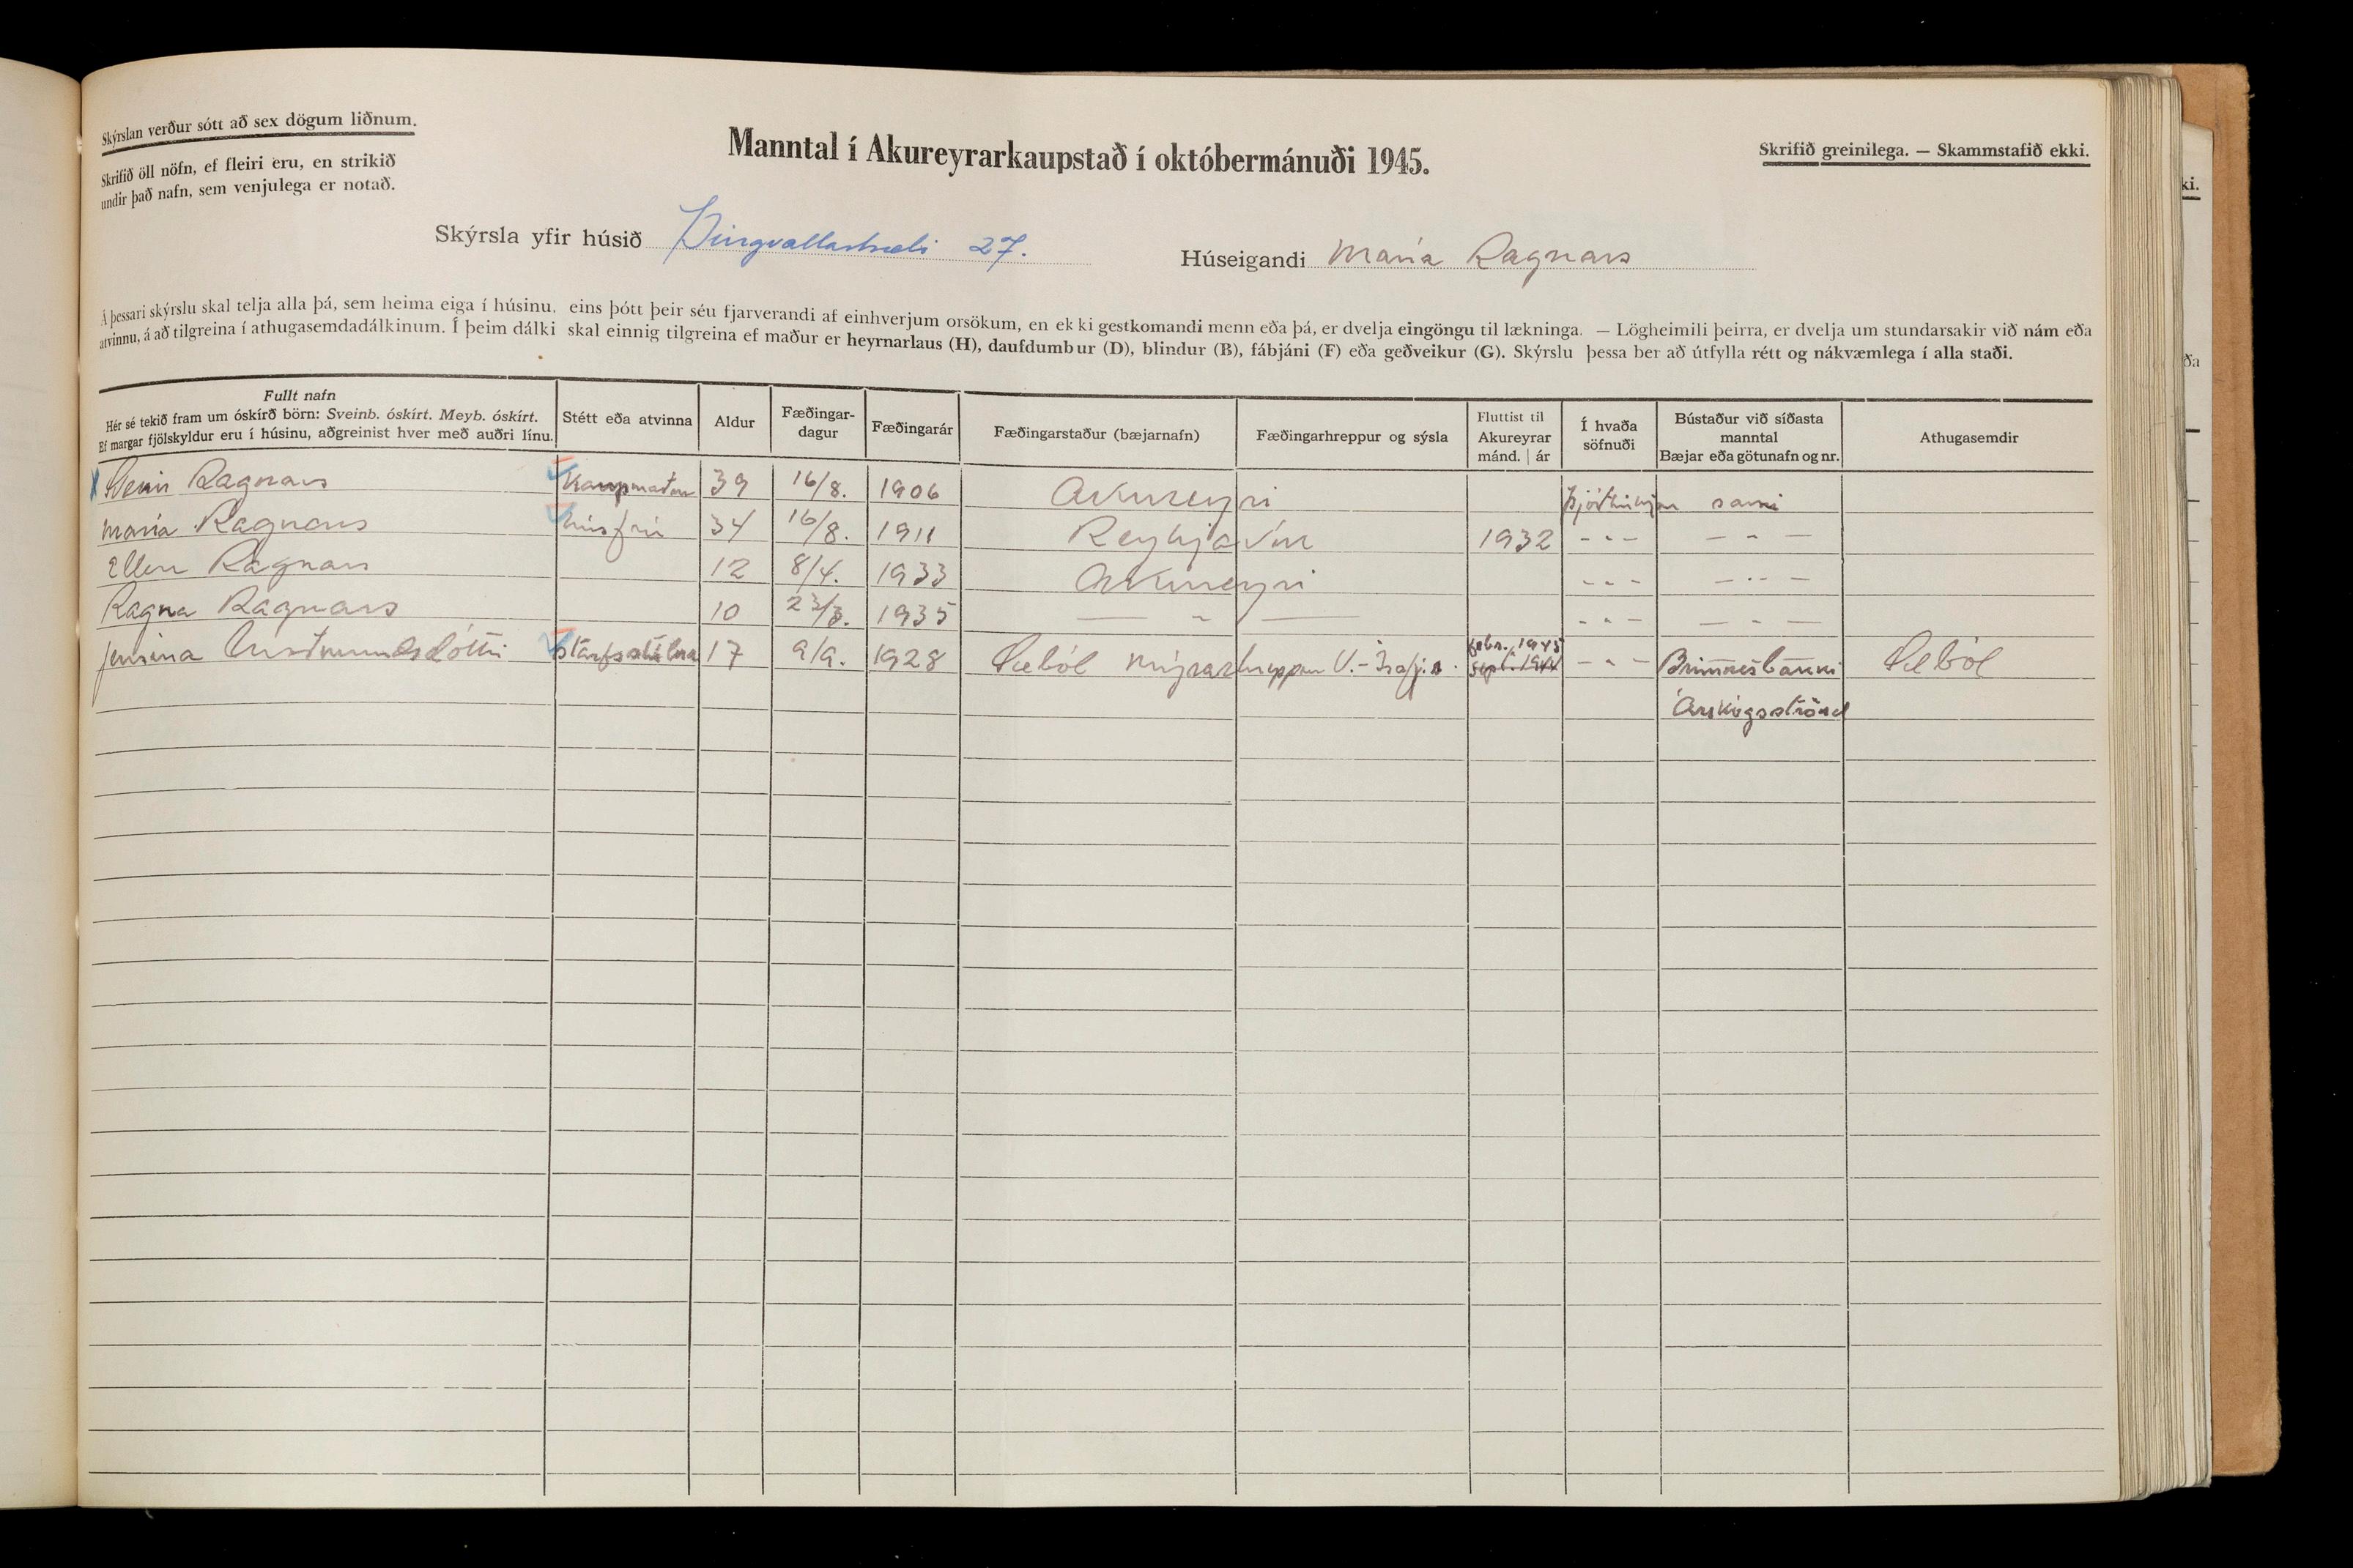 Skýrslan verður sótt að sex dögum liðnum.
Skrifið öll nöfn, ef fleiri eru, en strikið
undir það nafn, sem venjulega er notað.
Manntal í Akureyrarkaupstað í októbermánuði 1945.
Skrifið greinilega. — Skammstafið ekki.
Skýrsla yfir húsið Þingvallastræti 27.
Húseigandi María Ragnars
Á þessari skýrslu skal telja alla þá, sem heima eiga í húsinu, eins þótt þeir séu fjarverandi af einhverjum orsökum, en ekki gestkomandi menn eða þá, er dvelja eingöngu til lækninga. — Lögheimili þeirra, er dvelja um stundarsakir við nám eða
atvinnu, á að tilgreina í athugasemdadálkinum. Í þeim dálki skal einnig tilgreina ef maður er heyrnarlaus (H), daufdumbur (D), blindur (B), fábjáni (F) eða geðveikur (G). Skýrslu þessa ber að útfylla rétt og nákvæmlega í alla staði.
Fullt nafn
Hér sé tekið fram um óskírð börn: Sveinb. óskírt. Meyb. óskírt.
Ef margar fjölskyldur eru í húsinu, aðgreinist hver með auðri línu.
Stétt eða atvinna
Aldur
Fæðingar-
dagur
Fæðingarár
Fæðingarstaður (bæjarnafn)
Fæðingarhreppur og sýsla
Fluttist til
Akureyrar
mánd. | ár
Í hvaða
söfnuði
Bústaður við síðasta
manntal
Bæjar eða götunafn og nr.
Athugasemdir
Ragnars kaupmaður 39 16/8. 1906 Akureyri þjóðkirkjan sami
María Ragnars húsfrú 34 16/8. 1911 Reykjavík 1932 - " - — " —
Ellen Ragnars 12 8/4. 1933 Akureyri - " - — " —
Ragna Ragnars 10 23/3. 1935 — " — - " - — " —
Jensína starfsstúlka 17 9/9. 1928 Sæból Mýrarhreppur V.-Ísafj.s. febr. 1945 sept. 1944 - " - Brimnesbakki Sæból
Árskógsströnd